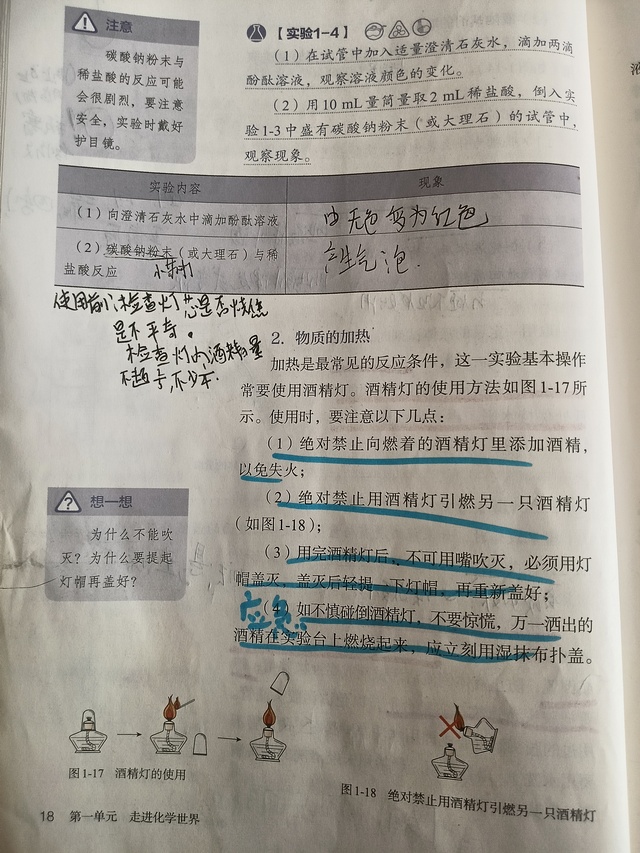 注意
碳酸钠粉末与
稀盐酸的反应可能
会很剧烈，要注意
安全，实验时戴好
护目镜。
【实验1-4】
（1）在试管中加入适量澄清石灰水，滴加两滴
酚酞溶液，观察溶液颜色的变化。
（2）用10 mL量筒量取2 mL稀盐酸，倒入实
验1-3中盛有碳酸钠粉末（或大理石）的试管中，
观察现象。
实验内容 现象
（1）向澄清石灰水中滴加酚酞溶液 由无色变为红色
（2）碳酸钠粉末（或大理石）与稀
盐酸反应 产生气泡.
使用前：检查灯芯是否烧焦
是不平齐。
检查灯内酒精量
2. 物质的加热
加热是最常见的反应条件，这一实验基本操作
常要使用酒精灯。酒精灯的使用方法如图1-17所
示。使用时，要注意以下几点：
（1）绝对禁止向燃着的酒精灯里添加酒精，
以免失火；
（2）绝对禁止用酒精灯引燃另一只酒精灯
（如图1-18）；
（3）用完酒精灯后，不可用嘴吹灭，必须用灯
帽盖灭，盖灭后轻提一下灯帽，再重新盖好；
应急
（4）如不慎碰倒酒精灯，不要惊慌，万一洒出的
酒精在实验台上燃烧起来，应立刻用湿抹布扑盖。
想一想
为什么不能吹
灭？为什么要提起
灯帽再盖好？
图1-17 酒精灯的使用
图1-18 绝对禁止用酒精灯引燃另一只酒精灯
18 第一单元 走进化学世界